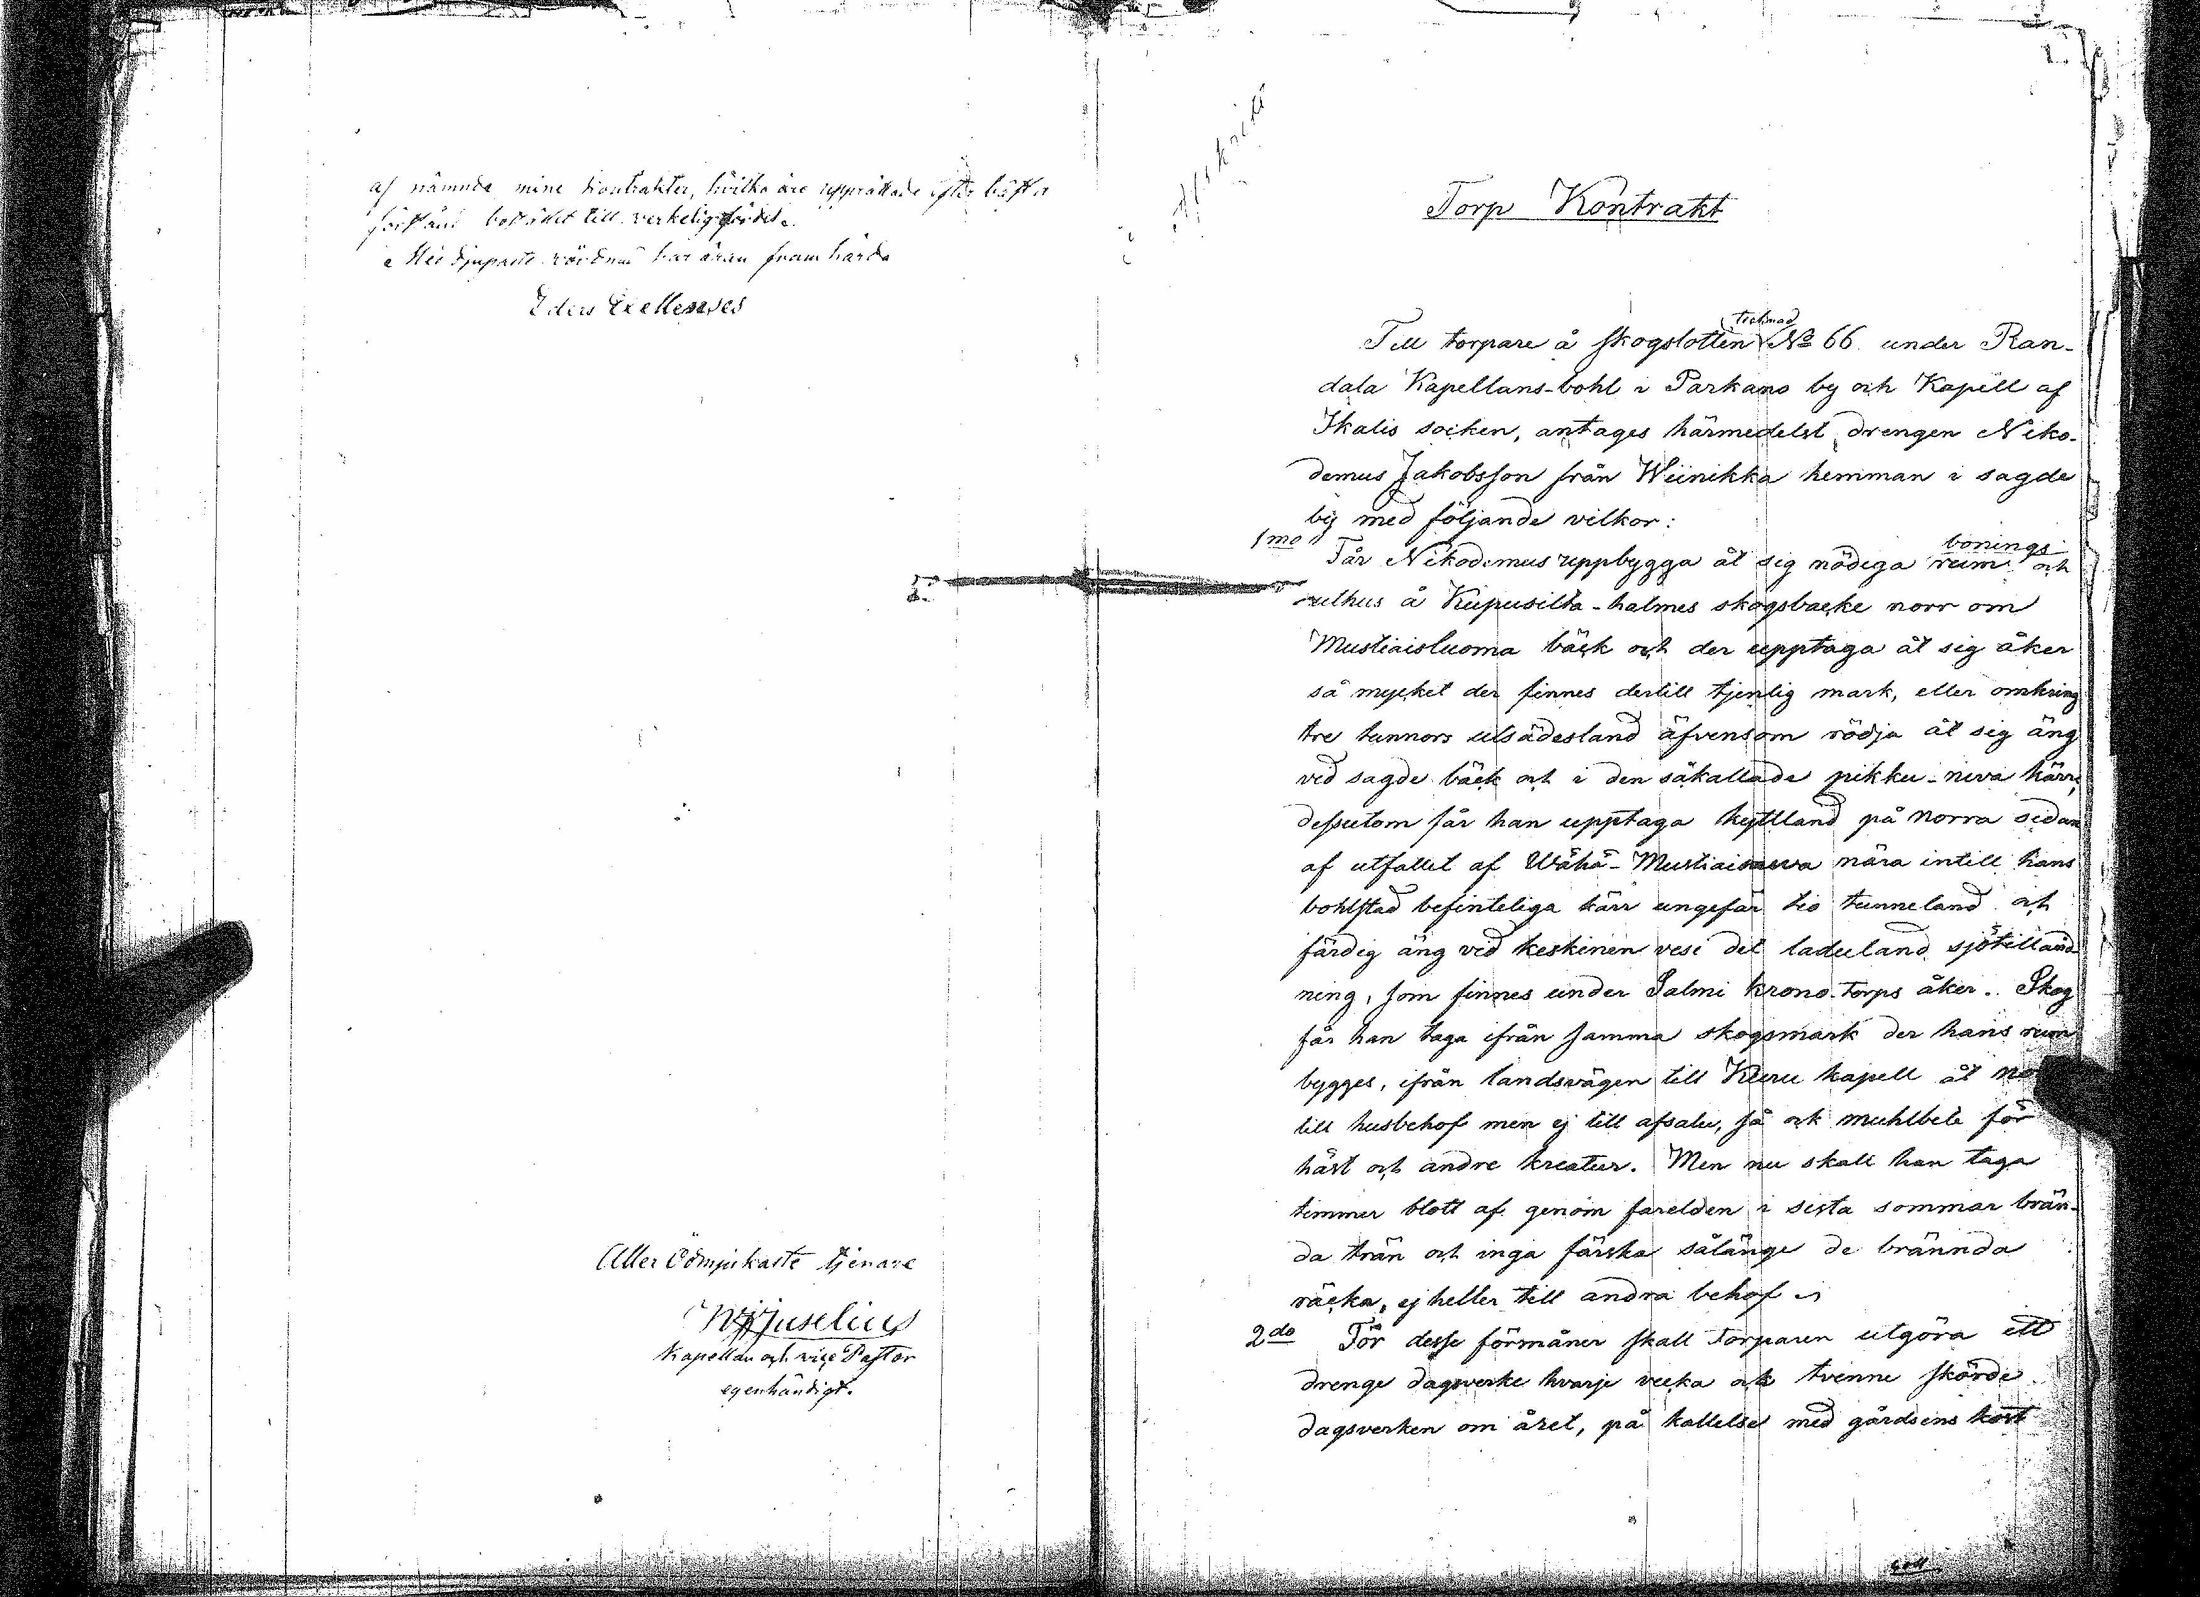 af nämnde mine kontrakter, hvilka äre upprättade efter bäste
förstånd bolstället till verkelig fördel.
Med djupaste vördnad har äran framhärda
Eders Excellences
Aller Ödmjukaste tjenare
Juselius
Kapellan och vice Pastor
egenhändigt.
Afskrift
Torp Kontrakt
tecknad
Till torpare å skogslotten No 66 under Ran-
dala Kapellans-bohl i Parkano by och Kapell af
Ikalis socken, antages härmedelst drengen Niko-
demus Jakobsson från Wiinikka hemman i sagde
by med följande vilkor:
1mo Får Nikodemus uppbygga åt sig nödiga bonings rum och
uthus å Kupusilta-halmes skogsbacke norr om
Mustiaisluoma bäck och der upptaga åt sig åker
så mycket der finnes dertill tjenlig mark, eller omkring
tre tunnors utsädesland äfvensom rödja åt sig äng
ved sagde bäck och i den såkallade pikku-neva kärr,
dessutom får han upptaga kyttland på norra sidan
af utfallet af Wähä-Mustiaisneva nära intill hans
bohlstad befinteliga kärr ungefär tio tunneland och
färdig äng ved keskinen vesi det laduland sjötilland
ning, som finnes under Salmi krono-torps åker. Skog
får han taga ifrån samma skogsmark der hans rum
bygges, ifrån landsvägen till Kuru kapell åt
till husbehof men ej till afsalu, så ock muhlbete för
häst och andre kreatur. Men nu skall han taga
timmer blott af genom farelden i sista sommar brän-
da trän och inga färska sålänge de brännda
räcka, ej heller till andra behof
2do För desse förmåner skall Torparen utgöra ett
drenge dagsverke hvarje vecka och tvenne skörde
dagsverken om året, på kallelse med gårdsens kost